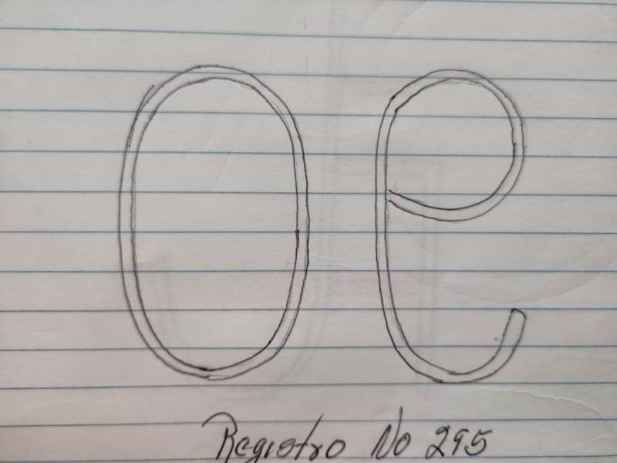 Oe
Registro No 295